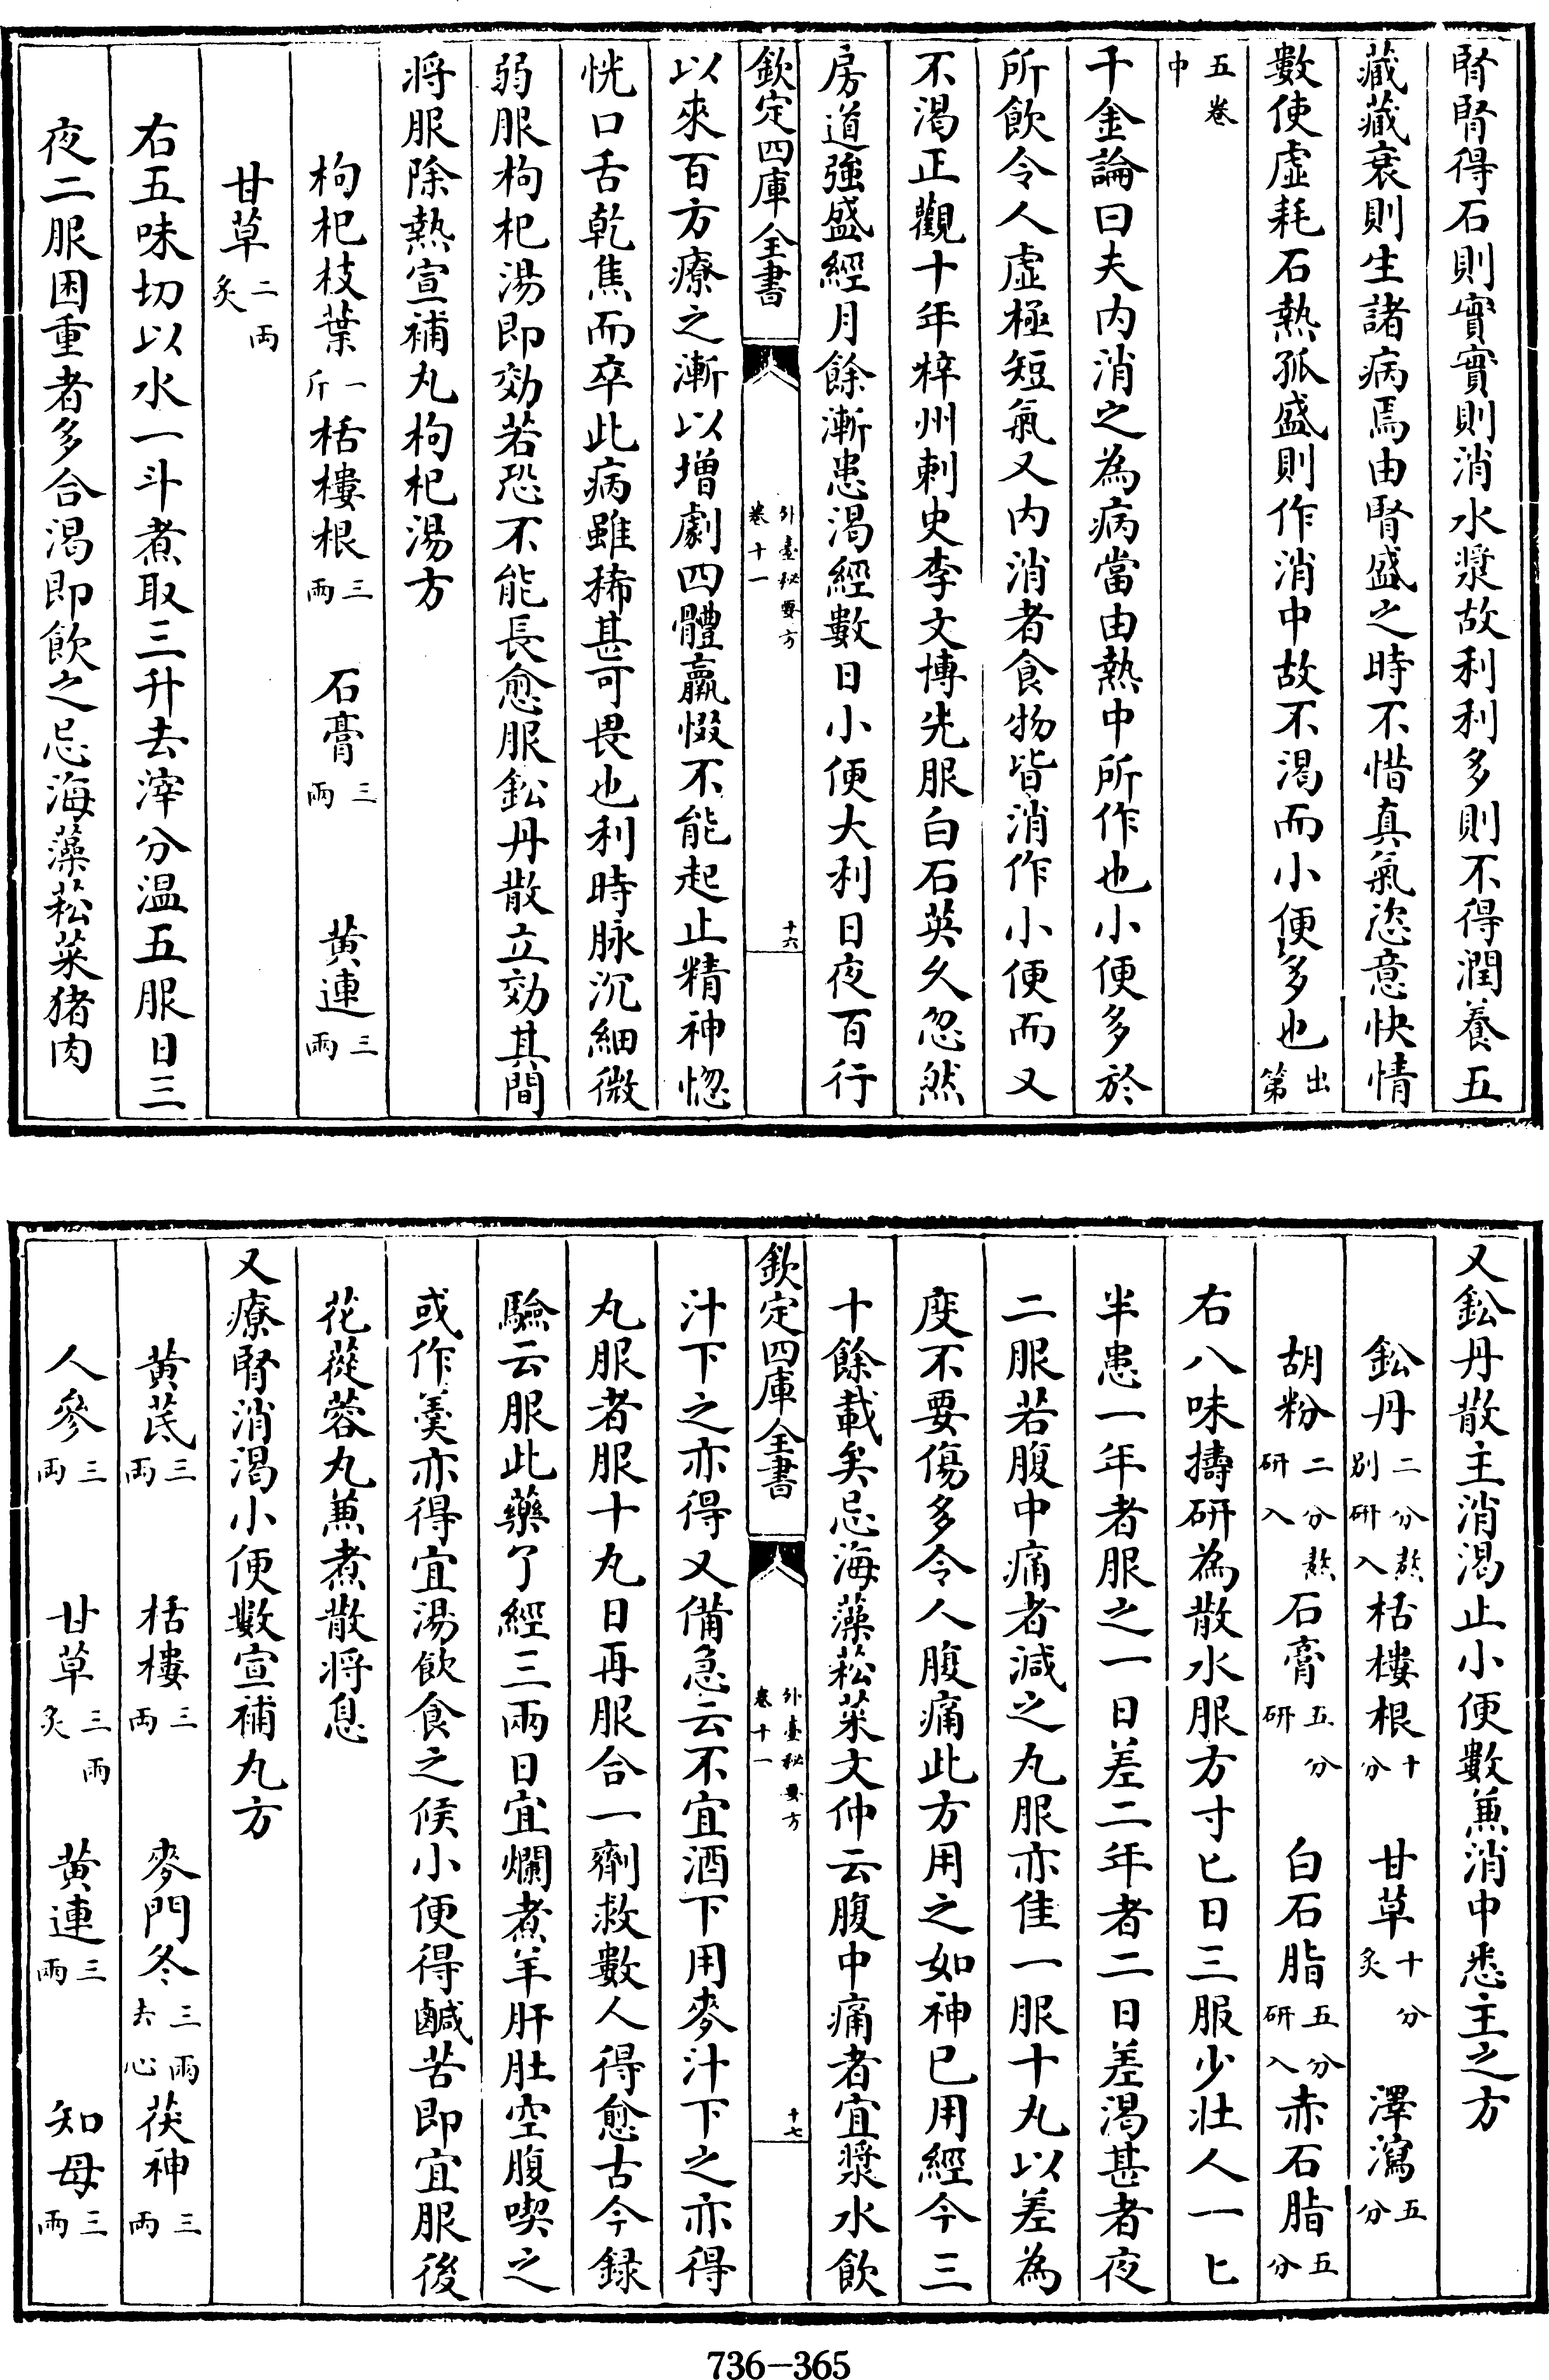 腎腎得石則實實則消水漿故利利多則不得潤養五
藏藏衰則生諸病焉由腎盛之時不惜真氣恣意快情
數使虛耗石熱孤盛則作消中故不渴而小便多也出第
五卷中
千金論曰夫内消之為病當由熱中所作也小便多於
所飲令人虛極短氣又内消者食物皆消作小便而又
不渴正觀十年梓州刺史李文博先服白石英久忽然
房道強盛經月餘漸患渴經數日小便大利日夜百行
欽定四庫全書 外臺秘要方卷十一 十六
以來百方療之漸以增劇四體羸惙不能起止精神惚
恍口舌乾焦而卒此病雖稀甚可畏也利時脉沉細微
弱服枸杞湯即効若恐不能長愈服鈆丹散立効其間
将服除熱宣補丸枸杞湯方
枸杞枝葉一斤 栝樓根三兩 石膏三兩 黄連三兩
甘草二兩炙
右五味切以水一斗煮取三升去滓分温五服日三
夜二服困重者多合渴即飲之忌海藻菘菜猪肉
又鈆丹散主消渴止小便數兼消中悉主之方
鈆丹二分熬别研入 栝樓根十分 甘草十分炙 澤瀉五分
胡粉二分熬研入 石膏五分研 白石脂五分研入 赤石脂五分
右八味擣研為散水服方寸匕日三服少壯人一匕
半患一年者服之一日差二年者二日差渴甚者夜
二服若腹中痛者減之丸服亦佳一服十丸以差為
度不要傷多令人腹痛此方用之如神已用經今三
十餘載矣忌海藻菘菜文仲云腹中痛者宜漿水飲
欽定四庫全書 外臺秘要方卷十一 十七
汁下之亦得又備急云不宜酒下用麥汁下之亦得
丸服者服十丸日再服合一劑救數人得愈古今録
驗云服此藥了經三兩日宜爛煮羊肝肚空腹喫之
或作羮亦得宜湯飲食之候小便得鹹苦即宜服後
花蓯蓉丸兼煮散将息
又療腎消渴小便數宣補丸方
黄芪三兩 栝樓三兩 麥門冬三兩去心 茯神三兩
人參三兩 甘草三兩炙 黄連三兩 知母三兩
736-365